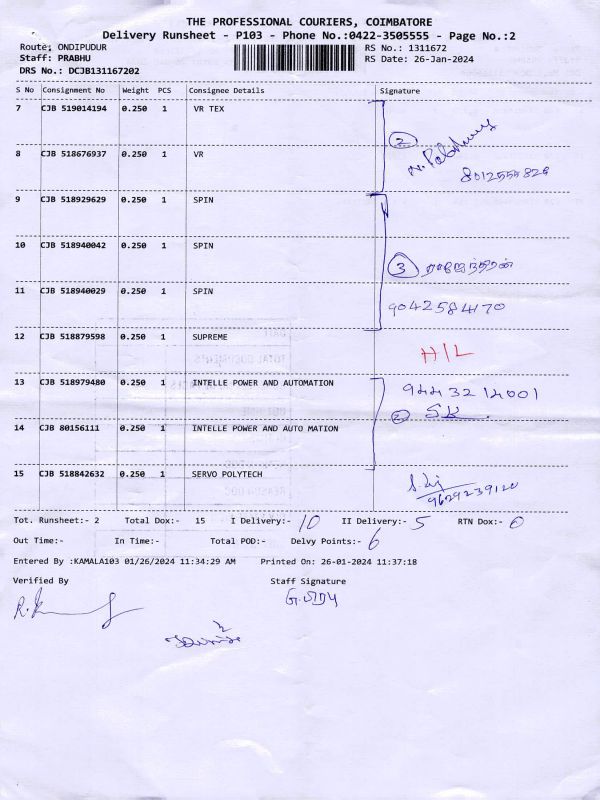 THE PROFESSIONAL COURIERS, COIMBATORE
Delivery Runsheet - P103 - Phone No.:0422-3505555 - Page No.:2
Route: ONDIPUDUR RS No.: 1311672
Staff: PRABHU RS Date: 26-Jan-2024
DRS No.: DCJB131167202
S No Consignment No Weight PCS Consignee Details Signature
7 CJB 519014194 0.250 1 VR TEX
2
8 CJB 518676937 0.250 1 VR
8012555826
9 CJB 518929629 0.250 1 SPIN
10 CJB 518940042 0.250 1 SPIN
3 ராஜேந்திரன்
11 CJB 518940029 0.250 1 SPIN
9042584170
12 CJB 518879598 0.250 1 SUPREME
H/L
13 CJB 518979480 0.250 1 INTELLE POWER AND AUTOMATION
9443214001
2
14 CJB 80156111 0.250 1 INTELLE POWER AND AUTO MATION
15 CJB 518842632 0.250 1 SERVO POLYTECH
9629239120
Tot. Runsheet:- 2 Total Dox:- 15 I Delivery:- 10 II Delivery:- 5 RTN Dox:- 0
Out Time:- In Time:- Total POD:- Delvy Points:- 6
Entered By :KAMALA103 01/26/2024 11:34:29 AM Printed On: 26-01-2024 11:37:18
Verified By Staff Signature